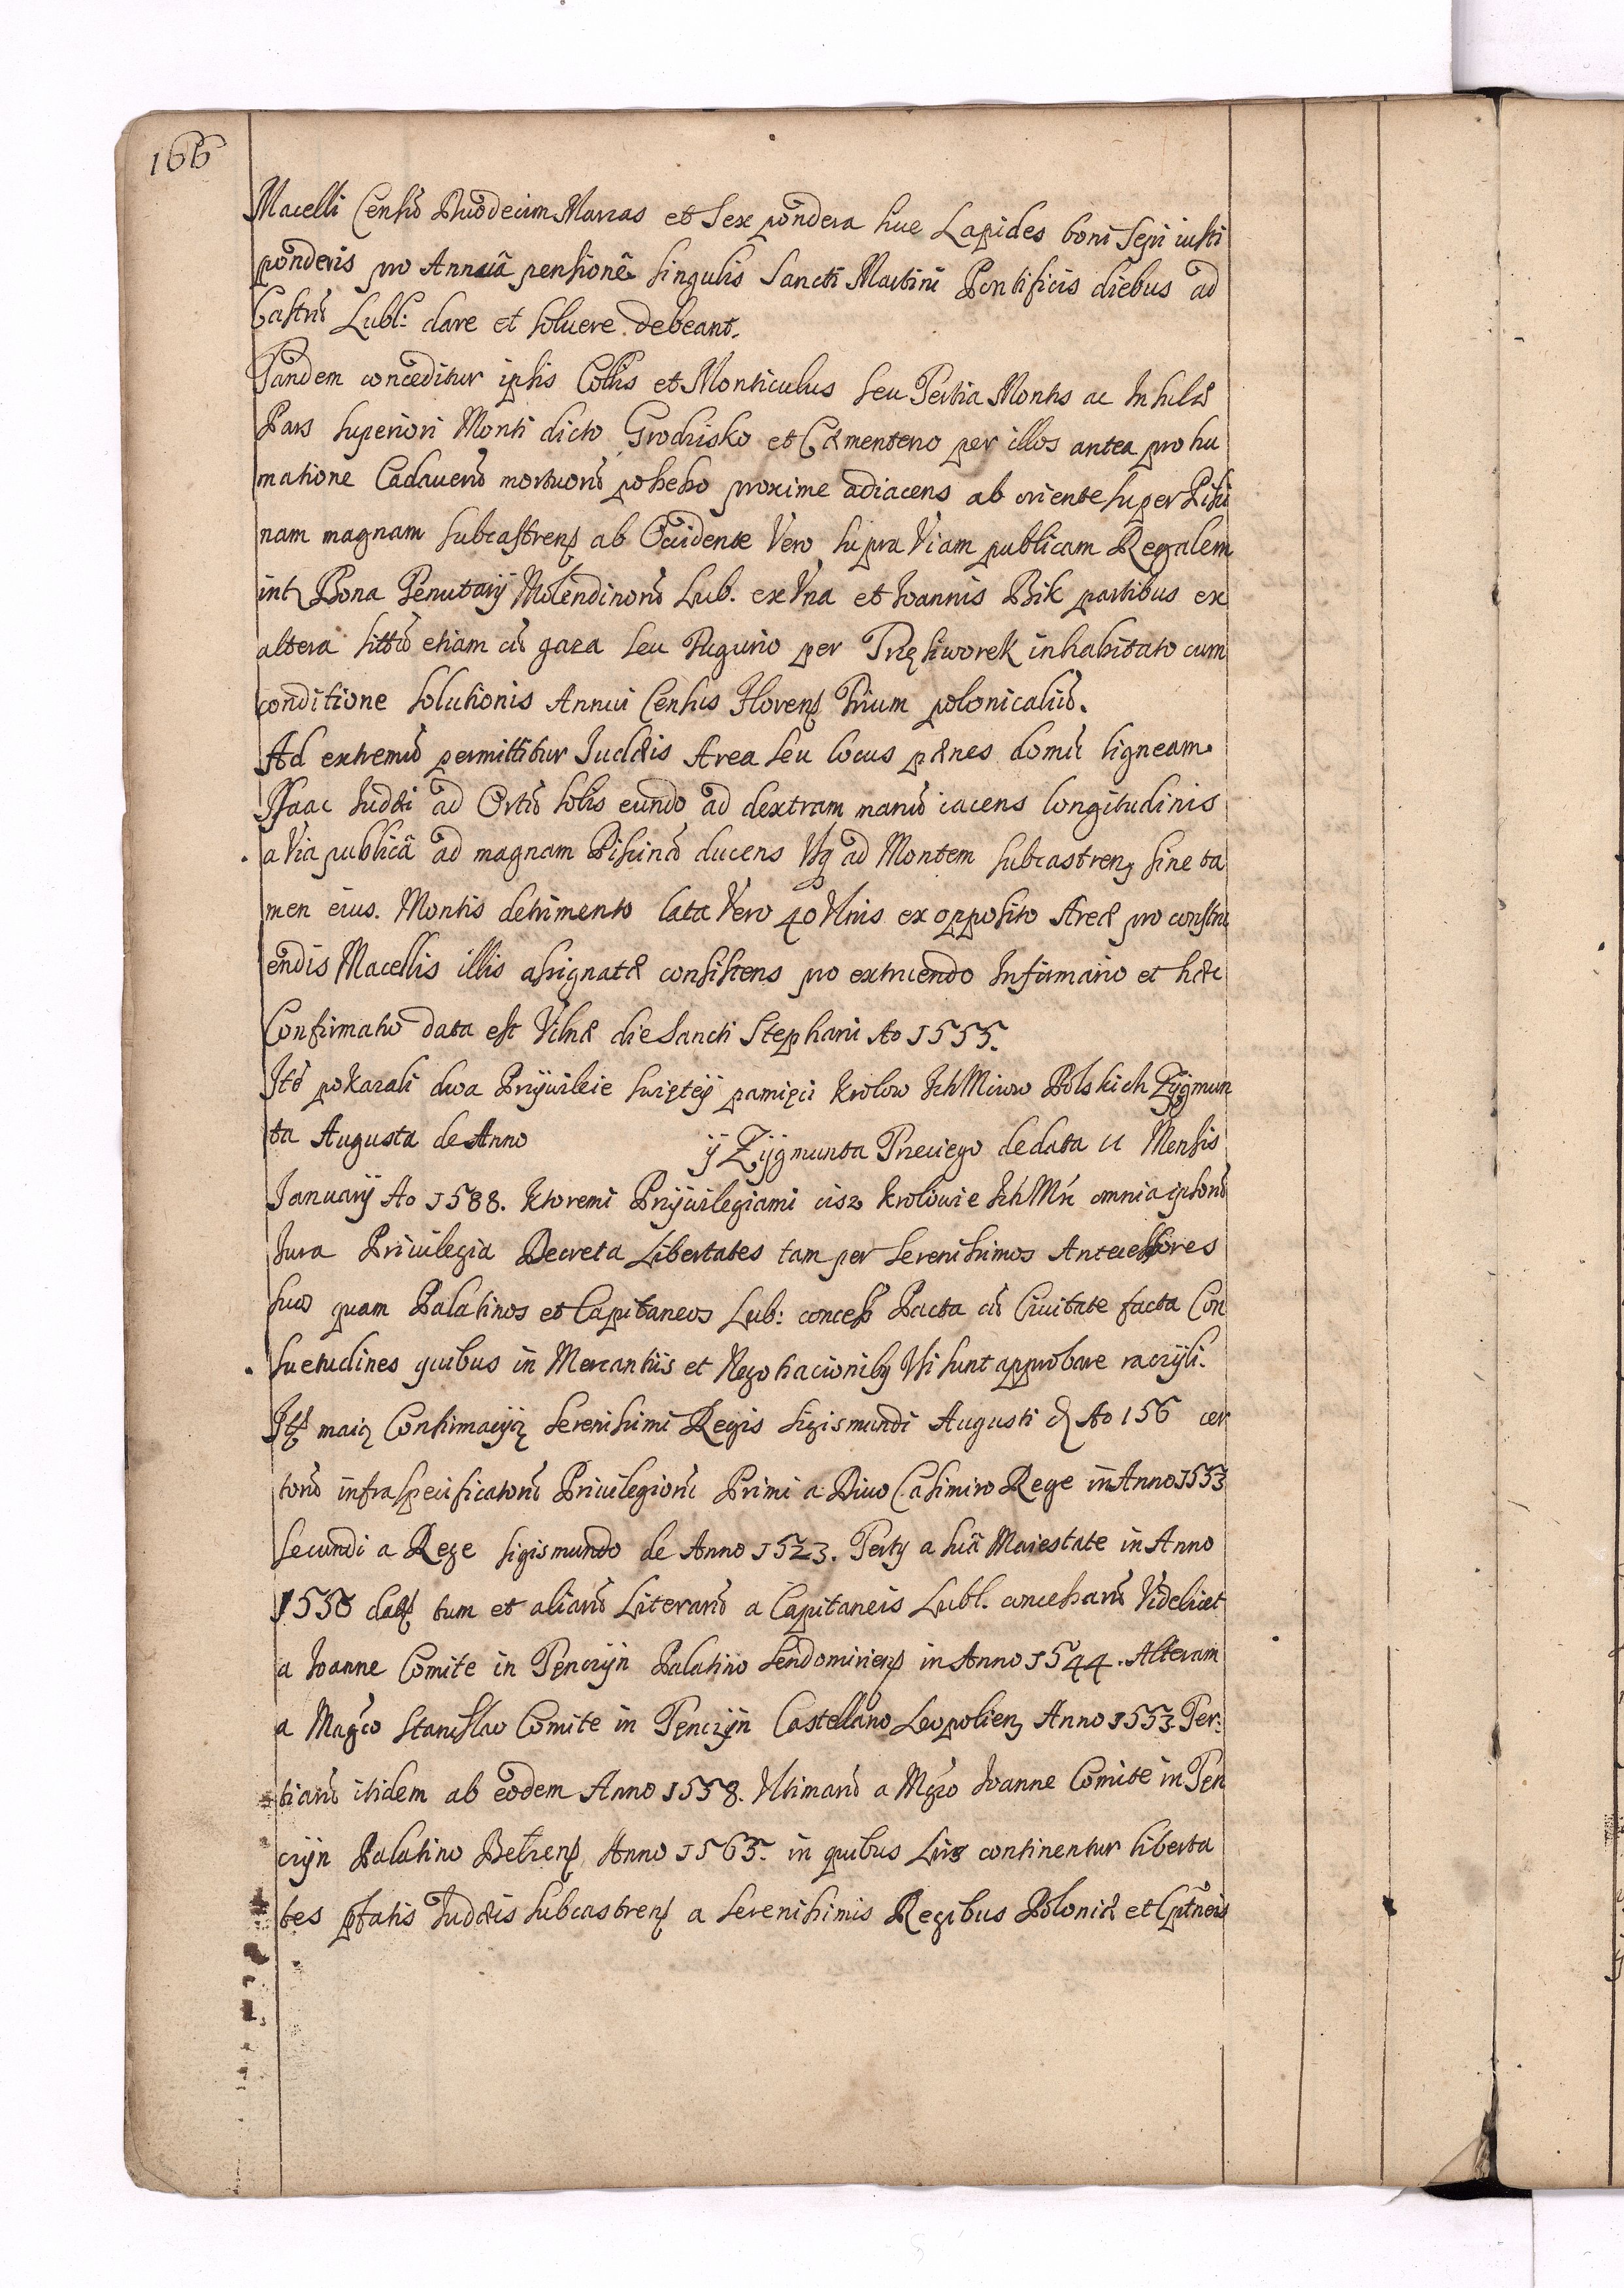 166
Macelli Censũ Duodecim Marcas et Sex pondera siue Lapides boni Sepi iusti
ponderis pro Annuã pensionẽ singulis Sancti Martini Pontificis diebus ad
Castrũ Lubl: dare et soluere debeant.
Tandem conceditur ipsis Collis et Monticulus seu Tertia Montis ac Insulæ
Pars superiori Monti dicto Grodzisko et Cæmenterio per illos antea pro hu
matione Cadauerũ mortuorũ possesso proxime adiacens ab oriente super Pisci
nam magnam subcastrens ab Occidente Vero supra Viam publicam Regalem
int Bona Penutarij Molendinorũ Lub. ex Vna et Joannis Bik partibus ex
altera sittũ etiam cũ gaza seu Tugurio per inhabitato cum
conditione solutionis Annui Census Florens Trium polonicaliũ.
Ad extremũ permittitur Judæis Area seu locus pænes domũ ligneam
Isaac Judæi ad Ortũ solis eundo ad dextram manũ iacens longitudinis
a Via publicã ad magnam Piscinã ducens Usq ad Montem subcastrens sine ta
men eius. Montis detrimento lata Vero 40 Vlnis ex opposito Areæ pro constru
endis Macellis illis assignatæ consistens pro extruendo Infirmario et hæc
Confirmatio data est Vilnæ die Sancti Stephani Ao 1555.
Itẽ pokazali dwa Przywileie swiętey pamięci Krolow Ich Mciow Polskich Zygmun
ta Augusta de Anno y Zygmunta Trzeciego de data 11 Mensis
Januarij Ao 1588. Ktoremi Przywilegiami cisz Krolowie Ich Mć omnia ipsorũ
Jura Priuilegia Decreta Libertates tam per Serenissimos Antecessores
suos quam Palatinos et Capitaneos Lub: concess Pacta cũ Ciuitate facta Con
suetudines quibus in Mercantiis et Negotiacionibq Vsi sunt approbare raczyli.
Itẽ maią Confirmacyią Serenissimi Regis Sigismundi Augusti d Ao 156 cer
torũ infraspecificatorũ Priuilegiorũ Primi a Diuo Casimiro Rege in Anno 1553
Secundi a Rege Sigismundo de Anno 1523. Tertij a suã Maiestate in Anno
1550 datt tum et aliarũ Literarũ a Capitaneis Lubl. concessarũ Videlicet
a Joanne Comite in Tenczyn Palatino Sendomiriens in Anno 1544. Alteram
a Magco Stanislao Comite in Tenczyn Castellano Leopoliens Anno 1553. Ter:
tiarũ itidem ab eodem Anno 1558. Vltimarũ a Mgco Joanne Comite in Ten
czyn Palatino Belzens Anno 1565. in quibus Lirs continentur liberta
tes pfatis Judæis subcastrens a Serenissimis Regibus Poloniæ et Cptneis